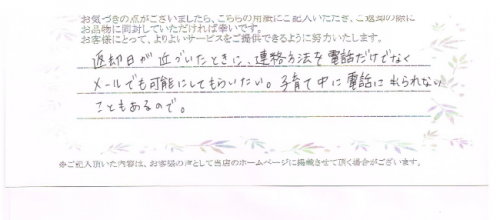 お気づきの点がございましたら、こちらの用紙にご記入いただき、ご返却の際に
お品物に同封していただければ幸いです。
お客様にとって、よりよいサービスをご提供できるように努力いたします。
返却日が近づいたときに、連絡方法を電話だけでなく
メールでも可能にしてもらいたい。子育て中に電話に出られない
こともあるので。
※ご記入頂いた内容は、お客様の声として当店のホームページに掲載させて頂く場合がございます。